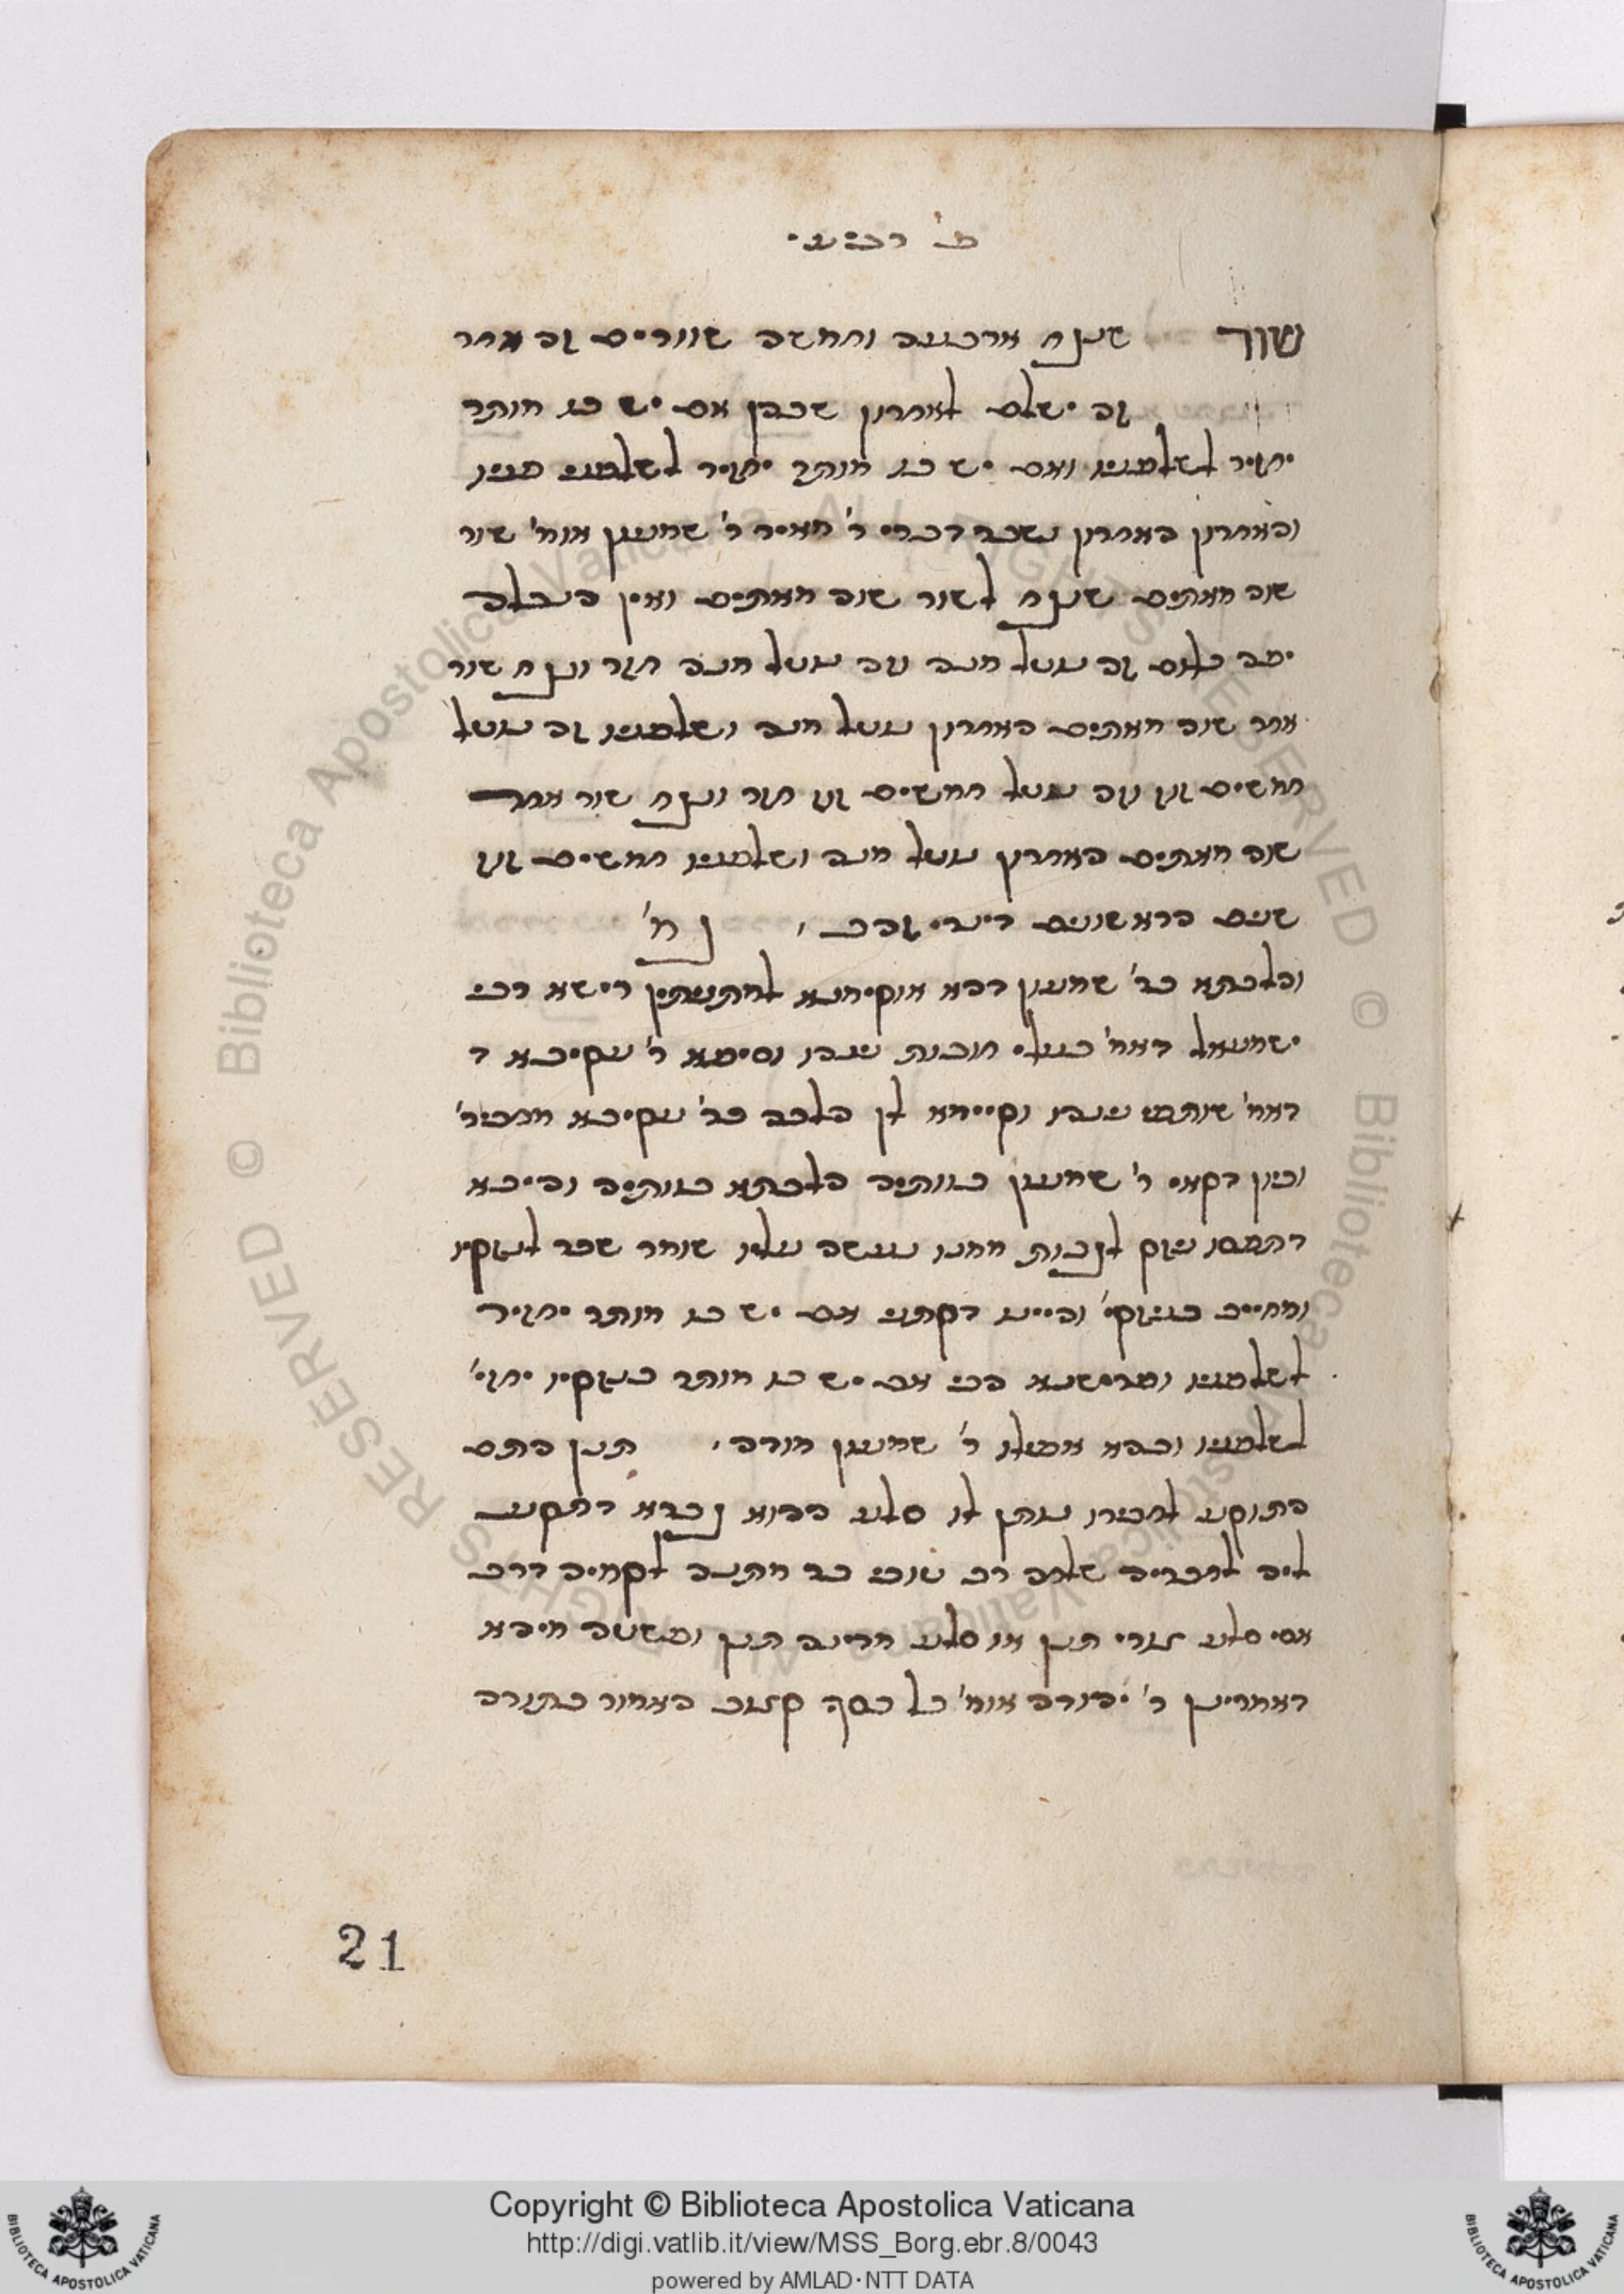 פ' רביעי
שור שנגח ארבעה וחמשה שוורים זה אחר
זה ישלם לאחרון שבהן אם יש בו מותר
יחזיר לשלפניו ואם יש בו מותר יחזיר לשלפני פניו
והאחרון האחרון נשכר דברי ר' מאיר ר' שמעון אומ' שור
שוה מאתים שנגח לשור שוה מאתים ואין הנבלה
יפה כלום זה נוטל מנה וזה נוטל מנה חזר ונגח שור
אחר שוה מאתים האחרון נוטל מנה ושלפניו זה נוטל
חמשים זוז וזה נוטל חמשים זוז חזר ונגח שור אחר
שוה מאתים האחרון נוטל מנה ושלפניו חמשים זוז
שנים הראשונים דינרי זהב גמ'
והלכתא כר' שמעון דהא אוקימנא למתניתין רישא רבי
ישמעאל דאמ' בעלי חובות נינהו וסיפא ר' עקיבא ד
דאמ' שותפי נינהו וקיימא לן הלכה כר' עקיבא מחביר'
וכיון דקאי ר' שמעון כוותיה הלכתא כוותיה והיכא
דתפסו ניזק לגבות ממנו נעשה עליו שומר שכר לנזקין
ומחייב בניזקי' והיינו דקתני אם יש בו מותר יחזיר
לשלפניו ומפרישנא הכי אם יש בו מותר בנזקיו יחזי'
לשלפניו ובהא אפילו ר' שמעון מודה תנן התם
התוקע לחבירו נותן לו סלע ההוא גברא דתקע
ליה לחבריה שלחה רב טובי בר מתנה לקמיה דרב
אסי סלע צורי תנן או סלע מדינה תנן ופשטה מיהא
דאמרינן ר' יהודה אומ' כל כסף קצוב האמור בתורה
21
Copyright © Biblioteca Apostolica Vaticana
http://digi.vatlib.it/view/MSS_Borg.ebr.8/0043
powered by AMLAD·NTT DATA